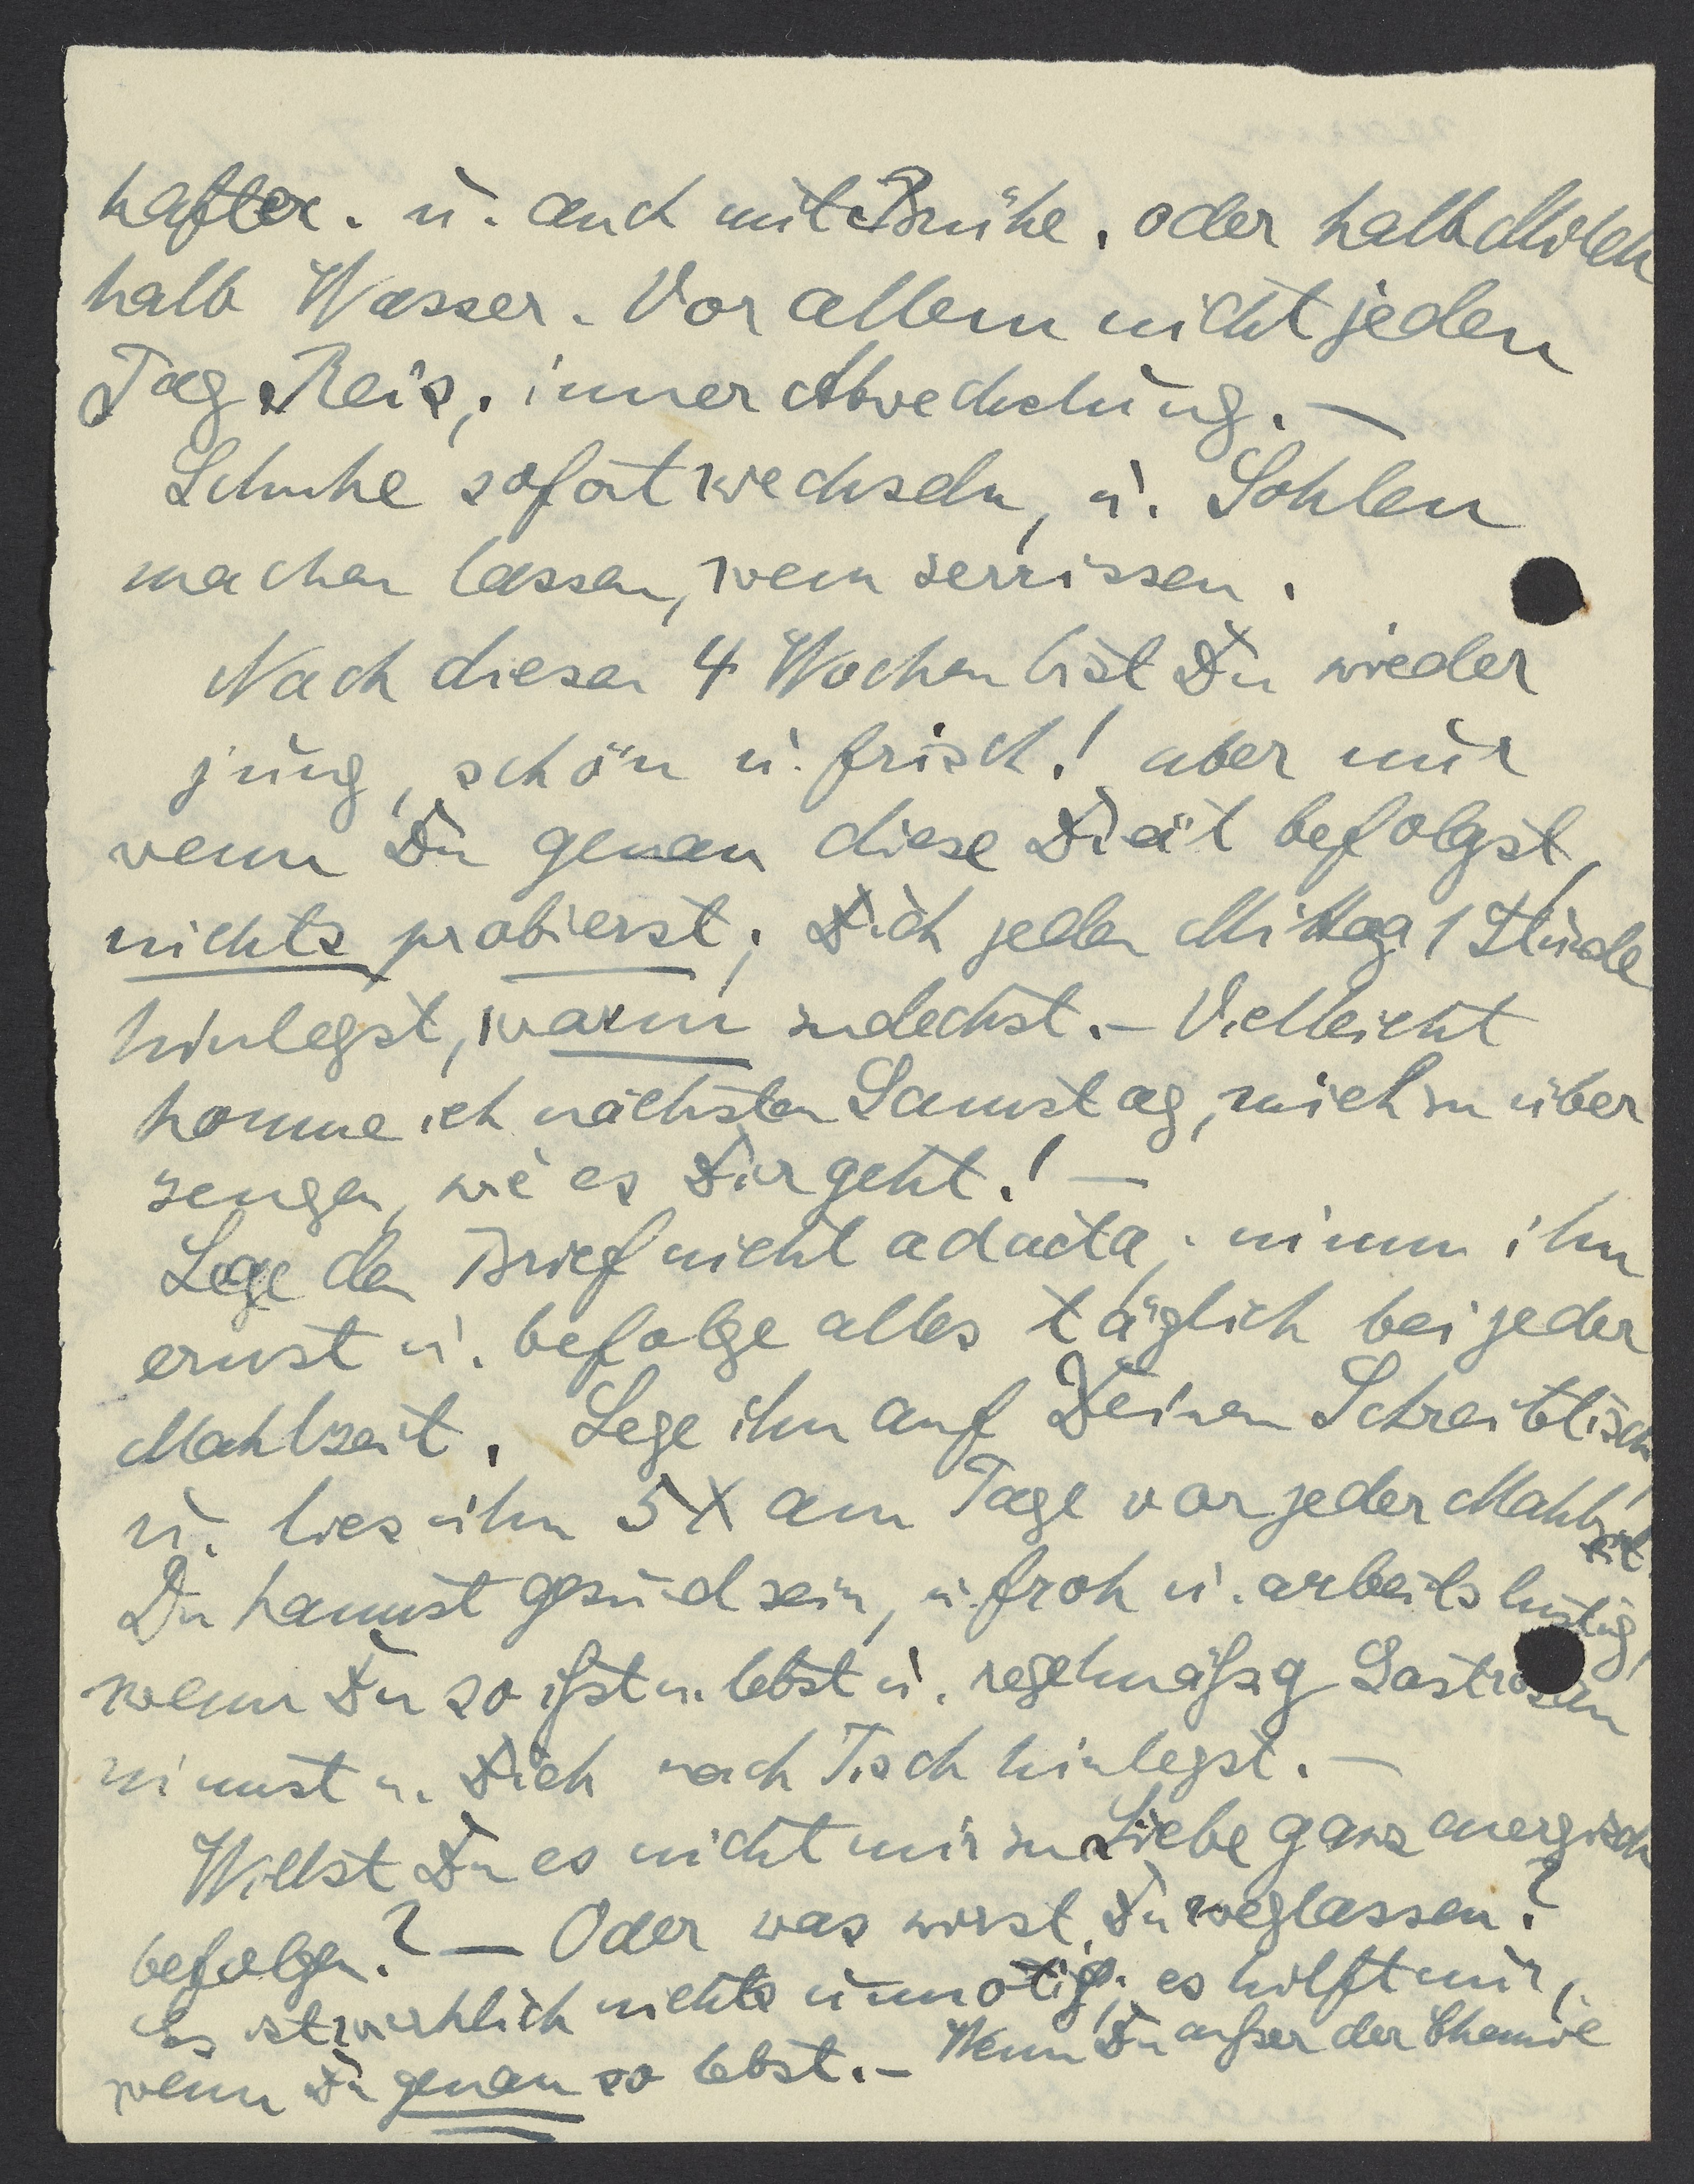 hafter. u. auch mit Brühe, oder halb Milch
halb Wasser. Vor allem nicht jeden
Tag Reis, immer Abwechslung. —
Schuhe sofort wechseln, u. Sohlen
machen lassen, wenn zerrissen.
Nach diesen 4 Wochen bist Du wieder
jung, schön u. frisch! aber nur
wenn Du genau diese Diät befolgst,
nichts probierst; Dich jeden Mittag 1 Stunde
hinlegst, warm zudeckst. – Vielleicht
komme ich nächsten Samstag, mich zu über
zeugen, wie es Dir geht! —
Lege den Brief nicht ad acta, nimm ihn
ernst u. befolge alles täglich bei jeder
Mahlzeit. Lege ihn auf Deinen Schreibtisch
u. lies ihn 5X am Tage vor jeder Mahlzeit!
Du kannst gesund sein, u. froh u. arbeitslustig,
wenn Du so ißt u. lebst u. regelmäßig Gastrosan
nimmst u. Dich nach Tisch hinlegst. —
Willst Du es nicht mir zu Liebe ganz energisch
befolgen? — Oder was wirst Du weglassen?
Es ist wirklich nichts unnötig; es hilft nur,
wenn Du genau so lebst. – Wenn Du außer der Chemie